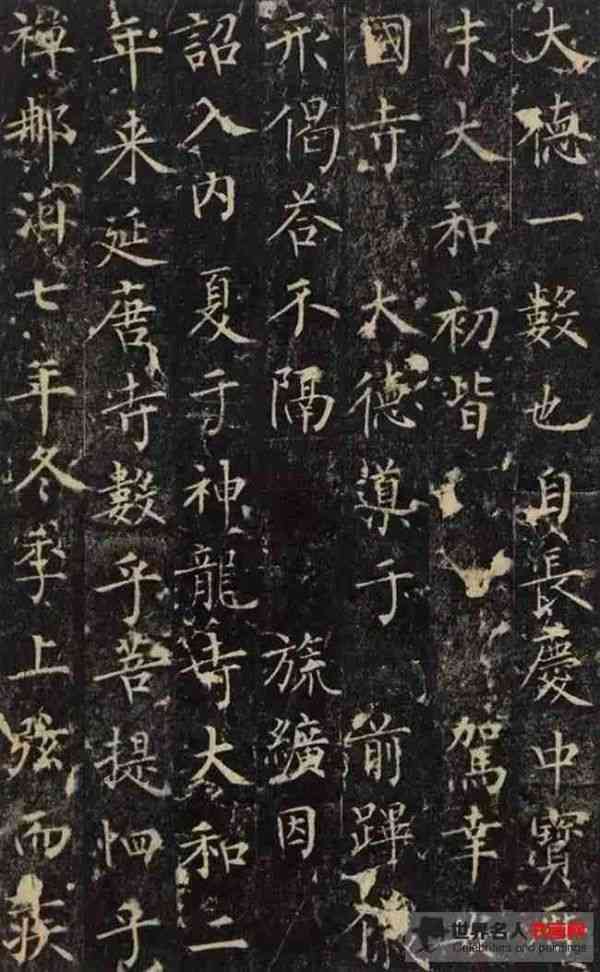 大德一數也自長慶中寶
末大和初皆 駕幸
國寺 大德導于 前蹕
形偈荅不隔 旒纊因
詔入内夏于神龍寺大和二
年来延唐寺數乎菩提乎
禅郍洎七年冬季上弦而疾
世界名人书画网
Celebrities and paintings